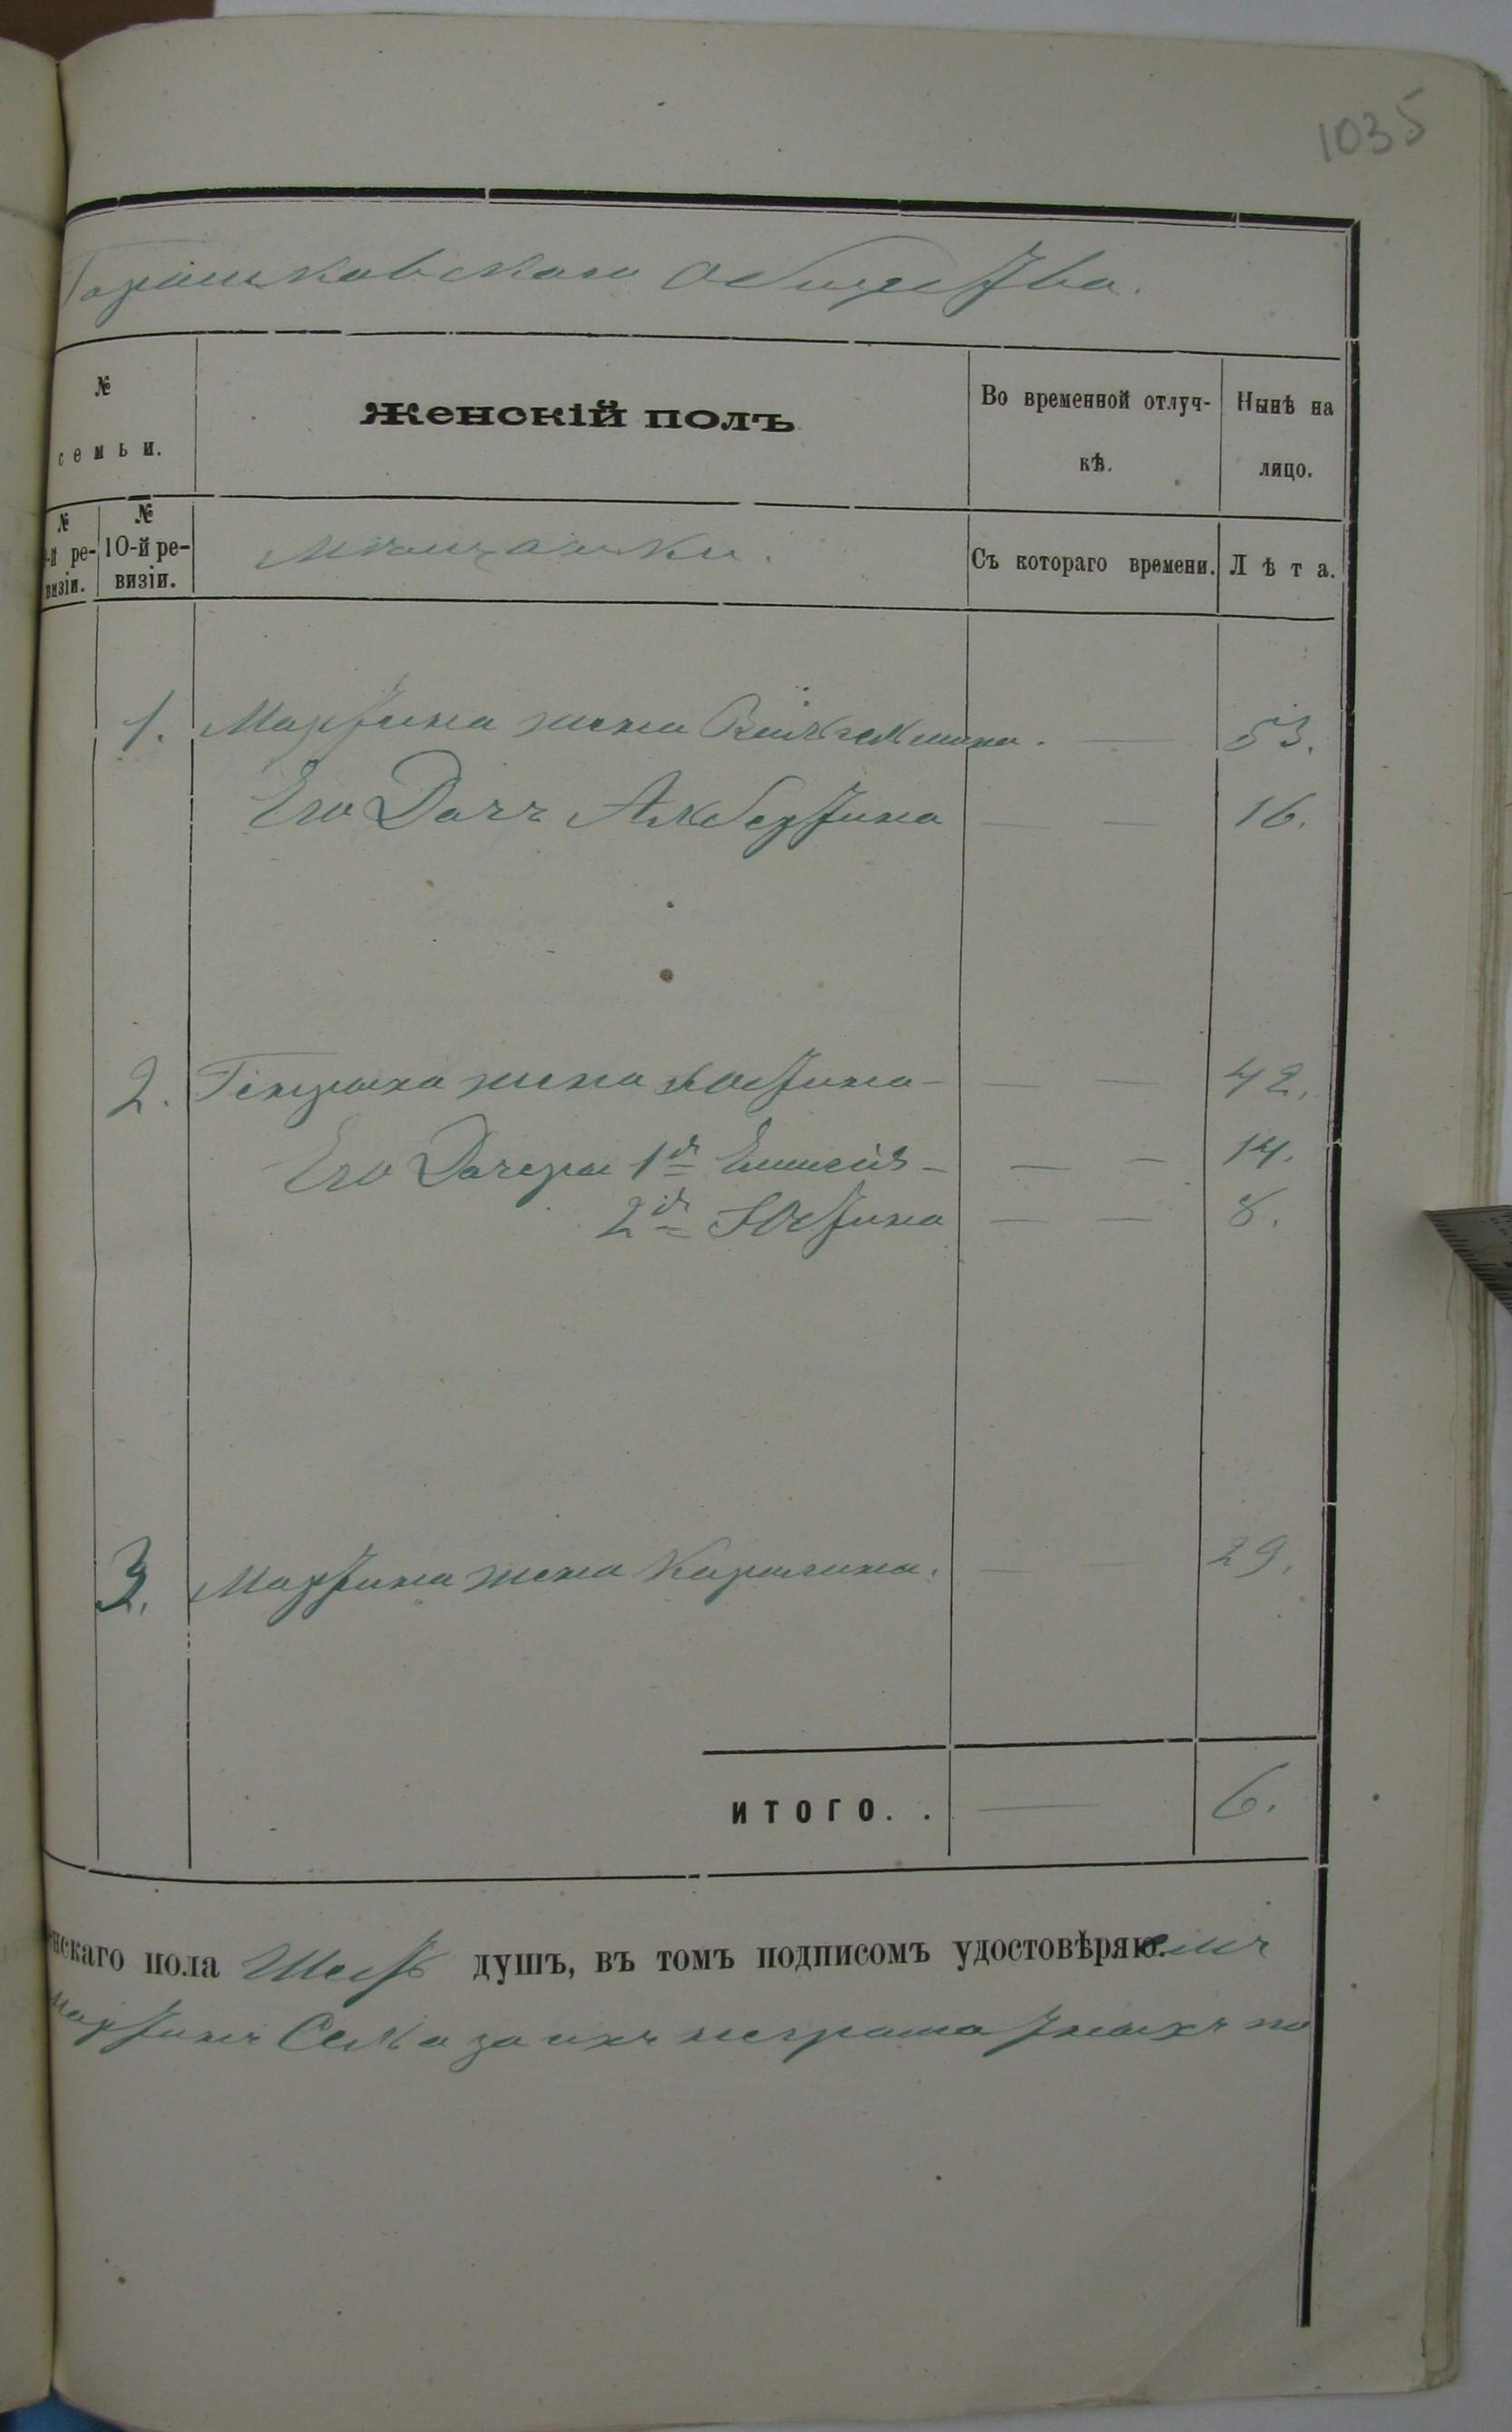 1035
Горшковскаго Общества.
№ семьи.
Женскій полъ
Во временной отлучкѣ.
Нынѣ на лицо.
№ -й ревизіи.
№ 10-й ревизіи.
Мѣщанки.
Съ котораго времени.
Лѣта.
1. Мартина жена Вильгельмина. — 53.
Его Дочь Альбертина — — 16.
2. Генриха жена Юстина — — — 42.
Его Дочери 1я Эмилія — — — 14.
2я Юстина — — 8.
3. Мартина жена Каролина. — — 29.
ИТОГО. . — 6.
нскаго пола Шесть душъ, въ томъ подписомъ удостовѣряю.емъ
Мартинъ за ихъ неграмотныхъ по